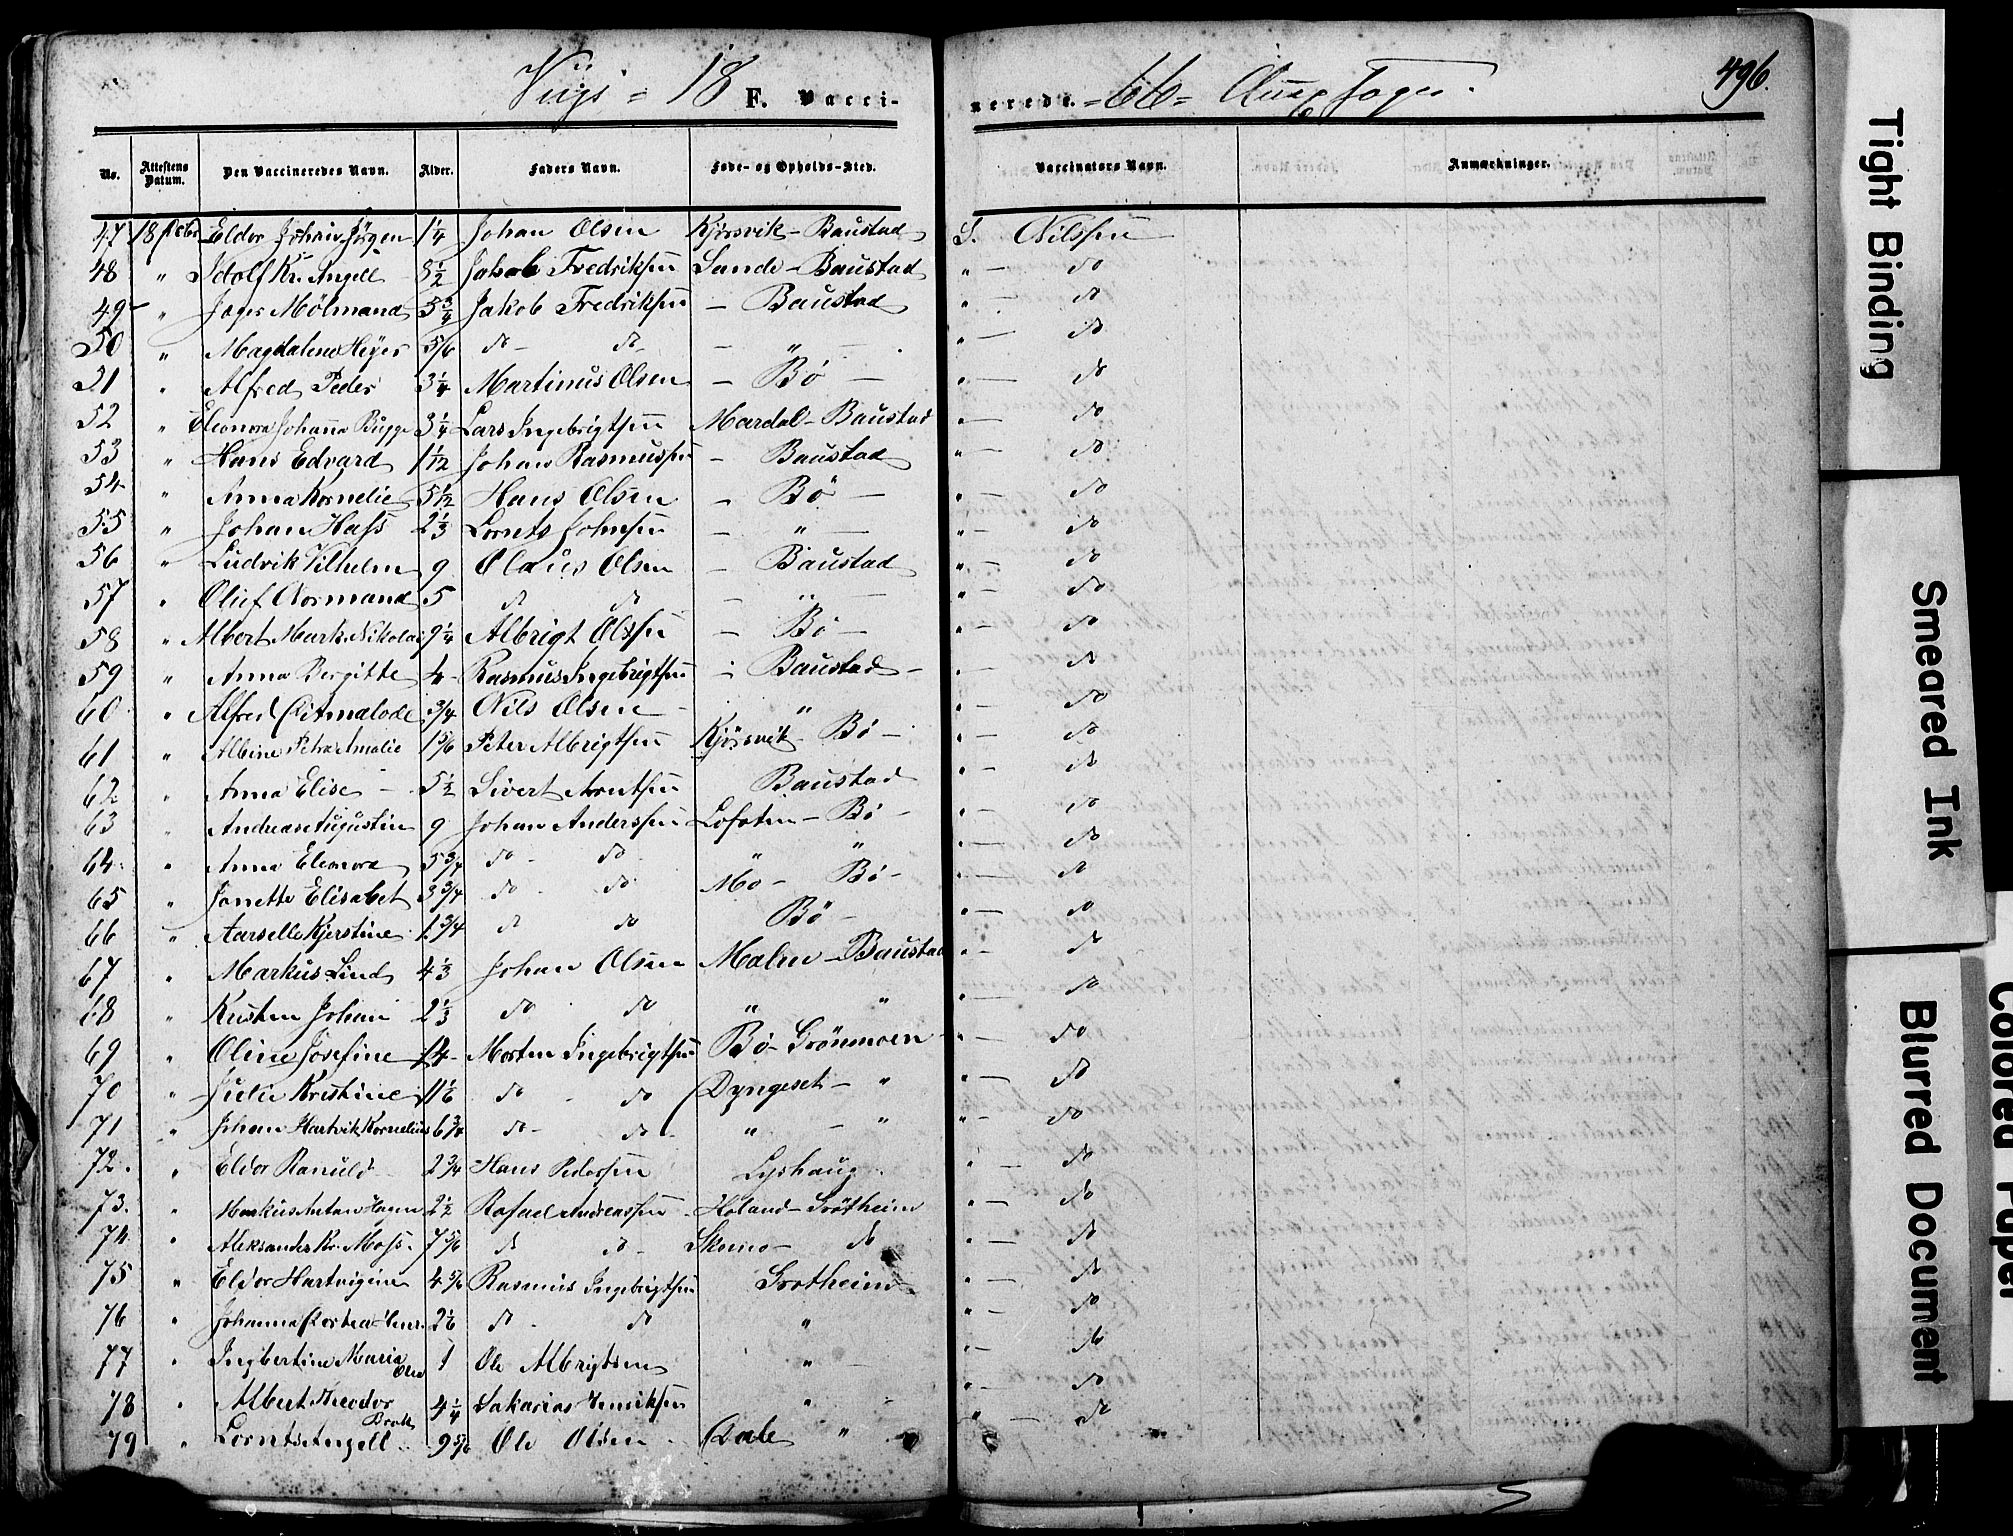 Vigs = 18 F. Vacci- nerede. = 66 = 496.
No. Attestens Datum. Den Vaccineredes Navn. Alder. Faders Navn. Føde- og Opholds-Sted. Vaccinators Navn. Anmærkninger.
47 18 Eldor Johan Jörgen 1 1/4 Johan Olsen Kjørsvik - Baustad S. Nilssen
48 " Idolf Kr. Angell 8 1/2 Jakob Fredriksen Sande - Baustad " do
49 " Jøger Mølmand 5 3/4 Jakob Fredriksen - Baustad " do
50 " Magdalena Heyer 5/6 do do - " - " do
51 " Alfred Peder 3 1/4 Martinus Olsen - Bö - " do
52 " Eleonora Johanna Bugge 3 1/4 Lars Ingebrigtsen Mardal - Baustad " do
53 " Hans Edvard 1 1/12 Johan Rasmussen - Baustad " do
54 " Anna Kornelie 5 1/12 Hans Olsen - Bö - " do
55 " Johan Hass 2 1/3 Lornts Johnsen - " - " do
56 " Ludvik Vilhelm 9 Olaus Olsen - Baustad " do
57 " Oluf Normand 5 do do - " - " do
58 " Albert Mark. Nikolai 9 1/4 Albrigt Olssen - Bö - " do
59 " Anna Birgitte 4 Rasmus Ingebrigtsen - Baustad - " do
60 " Alfred 3/4 Nils Olsen - " " do
61 " Albine Petra Amalie 1 5/6 Peter Albrigtsen Kjørsvik - Bö - " do
62 " Anna Elise - 5 1/2 Sivert Arntsen Baustad " do
63 " Andreas Augustin 9 Johan Anderssen Lofoten - Bö - " do
64 " Anna Elenora 5 3/4 do do " " " do
65 " Janette Elisabet 3 3/4 do do Mo - Bö - " do
66 " Aarselle Kjerstine 1 3/4 do do Bö - " do
67 " Markus Lind 4 1/3 Johan Olsen Malen - Baustad " do
68 " Kristen Johan 2 1/3 do do " " " do
69 " Oline Josefine 14 Morten Ingebrigtsen Bö - Grönmoen - " do
70 " Julie Kristine 11 1/6 do do Dyngeset - " " do
71 " Johan Hartvik Kornelius 6 3/4 do do " - " " do
72. " Eldor Ranuld 2 3/4 Hans Pedersen Lyshaug " do
73. " Markus Anton Hagen 2 1/2 Rafael Andreassen Holand - Grøtheim " do
74. " Aleksander Kr. Moss. 7 5/6 do do Skomo - do " do
75 " Eldor Hartvigine 4 5/6 Rasmus Ingebrigtsen Grotheim " do
76 " Johanna 2 1/6 do do " " do
77 " Ingbertine Maria 1 Ole Albrigtsen " - " do
78 " Albert Theodor Brok 4 1/4 Sakarias Henriksen " " do
79 " Lornts Angell 9 5/6 Ole Olsen Dale " " do
Tight Binding
Smeared Ink
Blurred Document
Colored Paper